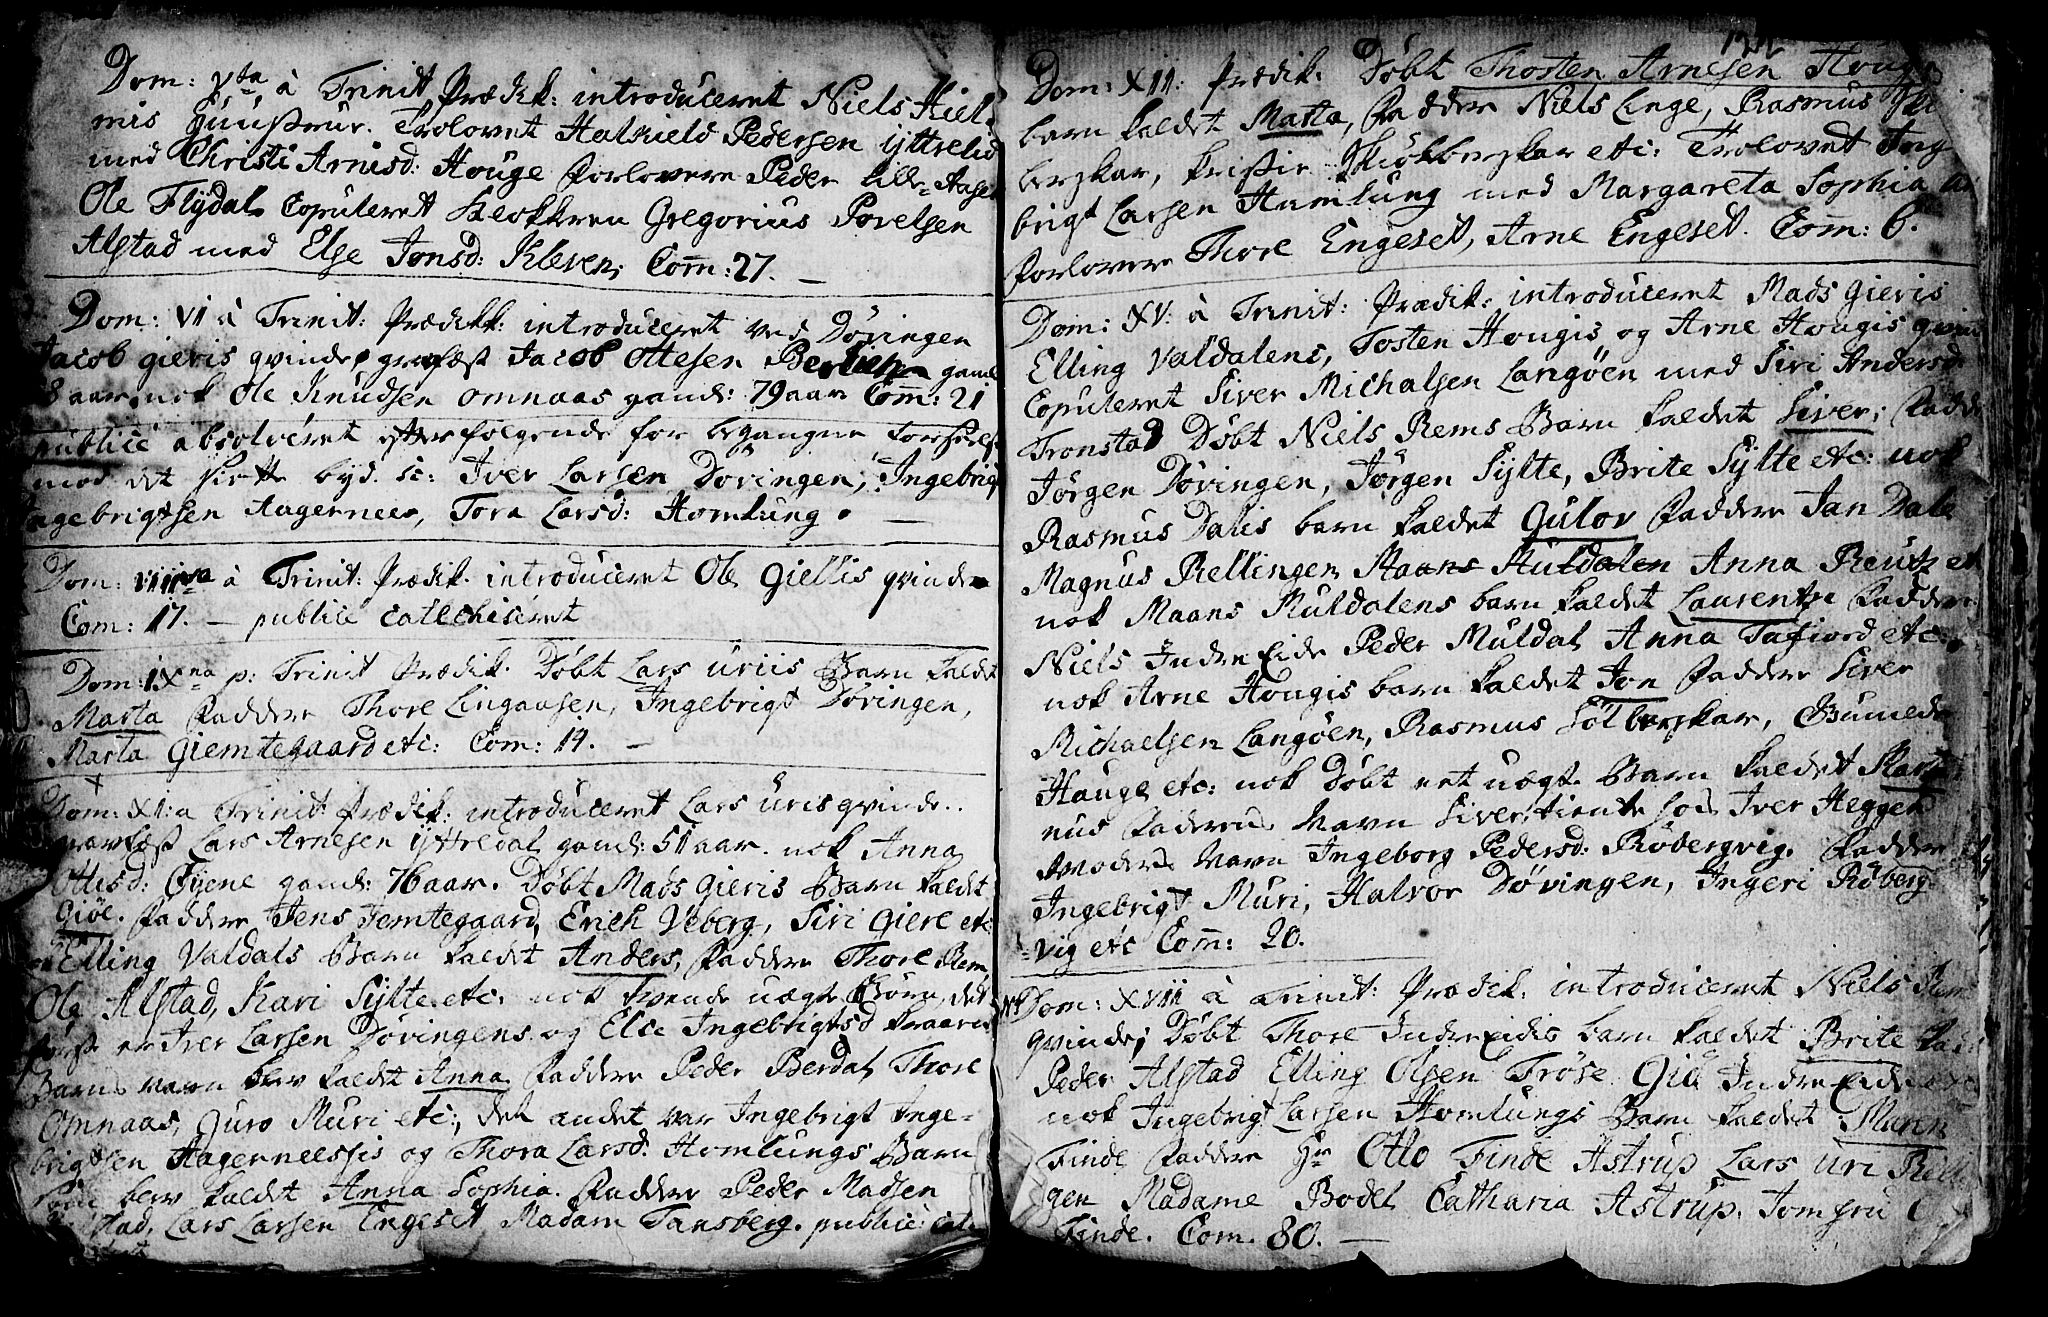 Dom: Vta à Trinit Prædik: introduceret Niels Kiel-
mis Hustrue. Trolovet Halkield Pedersen yttrelid
med Christi Arnisd: Houge Forlovere Peder Lille-Aasen
Ole Flydal. Copuleret Klokkeren Gregorius Povelsen
Alstad med Else Jonsd: Kleven. Com̅: 27. —
Dom: VI à Trinit: Prædikk: introduceret ved Døvingen
Jacob gieris qvinde, grafæst Jacob Ottesen gaml
8 aar, nok Ole Knudsen Omnaas gaml: 79 aar Com̅: 21
publice absolveret efterfølgende for begangne
mod det siette byd. sc: Iver Larsen Døvingen, Ingebrigt
Ingebrigtsen Aagernees, Tora Larsd: Homlung. —
Dom: VIIIva à Trinit: Prædik. introduceret Ole Giellis qvinde
Com: 17. — publice catechiseret
Dom: IXna p: Trinit Prædik. Døbt Lars Uriis Barn kaldet
Marta Faddere Thore Lingaasen, Ingebrigt Døvingen,
Marta Giemtegaard etc: Com: 19. —
Dom: XI: a Trinit: Prædik: introduceret Lars Uris qvinde.
gravfæst Lars Arnesen yttredal gaml: 51 aar. nok Anna
Ottisd: Øyene gaml: 76 aar. Døbt Mads Gieris Barn kaldet
Giøe. Faddere Jens Jemtegaard, Erich Veberg, Siri Giere etc:
Elling Valdals Barn kaldet Anders, Faddere Thore Rem,
Ole Alstad, Kari Sylte etc: nok tvende uægte Børn, det
først er Iver Larsen Døvingens og Else Ingebrigtsd
Barns navn blev kaldet Anna Faddere Peder Berdal, Thore
Omnaas, Guro Muri etc:, det andet var Ingebrigt Inge-
brigtsen Aagerneessis og Thora Larsd. Homlungs Barn
som blev kaldet Anna Sophia. Faddere Peder Madsen
Alstad, Lars Larsen Engeset Madam Tansberg. publice cate-
Dom: XII: Prædik. Døbt Thosten Arnesen Houges
barn kaldet Marta, Faddere Niels Linge, Rasmus
berskar, Kristie etc: Trolovet Inge
brigt Larsen Humlung med Margareta Sophia
Forlovere Thore Engeset, Arne Engeset. Com̅: 6.
Dom: XV: à Trinit: Prædik: introduceret Mads Gieris
Elling Valdalens, Tosten Hougis, og Arne Hougis qvin
Copuleret Siver Michalsen Langøen med Siri Andersd
Tronstad Døbt Niels Rems Barn kaldet Siver; Fadde
Jørgen Døvingen, Jørgen Sylte, Brite Sylte etc: nok
Rasmus Dalis barn kaldet Gulov Faddere Jan Dale
Magnus Rellingen Maans Muldalen Anna Reutz et
nok Maans Muldalens barn kaldet Laurentze Faddere
Niels Indre Eide Peder Muldal Anna Tafiord etc:
nok Arne Hougis barn kaldet Jon Faddere Siver
Michaelsen Langøen, Rasmus Sølberskar, Gumede
Hauge etc: nok Døbt eet uægte Barn kaldet
Faderens Navn Siver, tiente hos Iver Heggen
Moders Navn Ingeborg Pedersd: Røbergvig. Faddere
Ingebrigt Muri, Halvor Døvingen, Ingeri Røberg-
vig etc Com̅: 20.
Dom: XVII à Trinit: Prædik: introduceret Niels Rem
qvinde; Døbt Thore Indre Eidis barn kaldet Brite
Peder Alstad Elling Olsen Trøse Giø Indre Eide
nok Ingebrigt Larsen Homlungs Barn kaldet Maren
Finde Faddere Hr Otto Finde Astrup Lars Uri
gen Madame Bodel Catharia Astrup. Jomfru
Finde. Com. 80. —